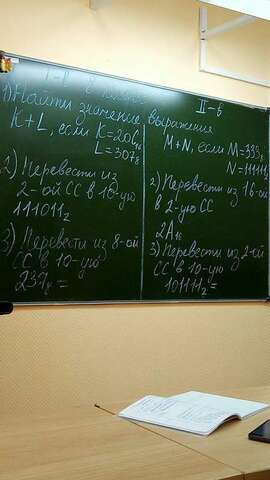 I-В
II-Б
1) Найти значение выражения
K+L, если K=20C₁₆
L=307₈
2) Перевести из
2-ой СС в 10-ую
111011₂
3) Перевести из 8-ой
СС в 10-ую
237₈ =
M+N, если M=335₈
N=111111₂
2) Перевести из 16-ой
в 2-ую СС
2A₁₆
3) Перевести из 2-ой
СС в 10-ую
101111₂ =